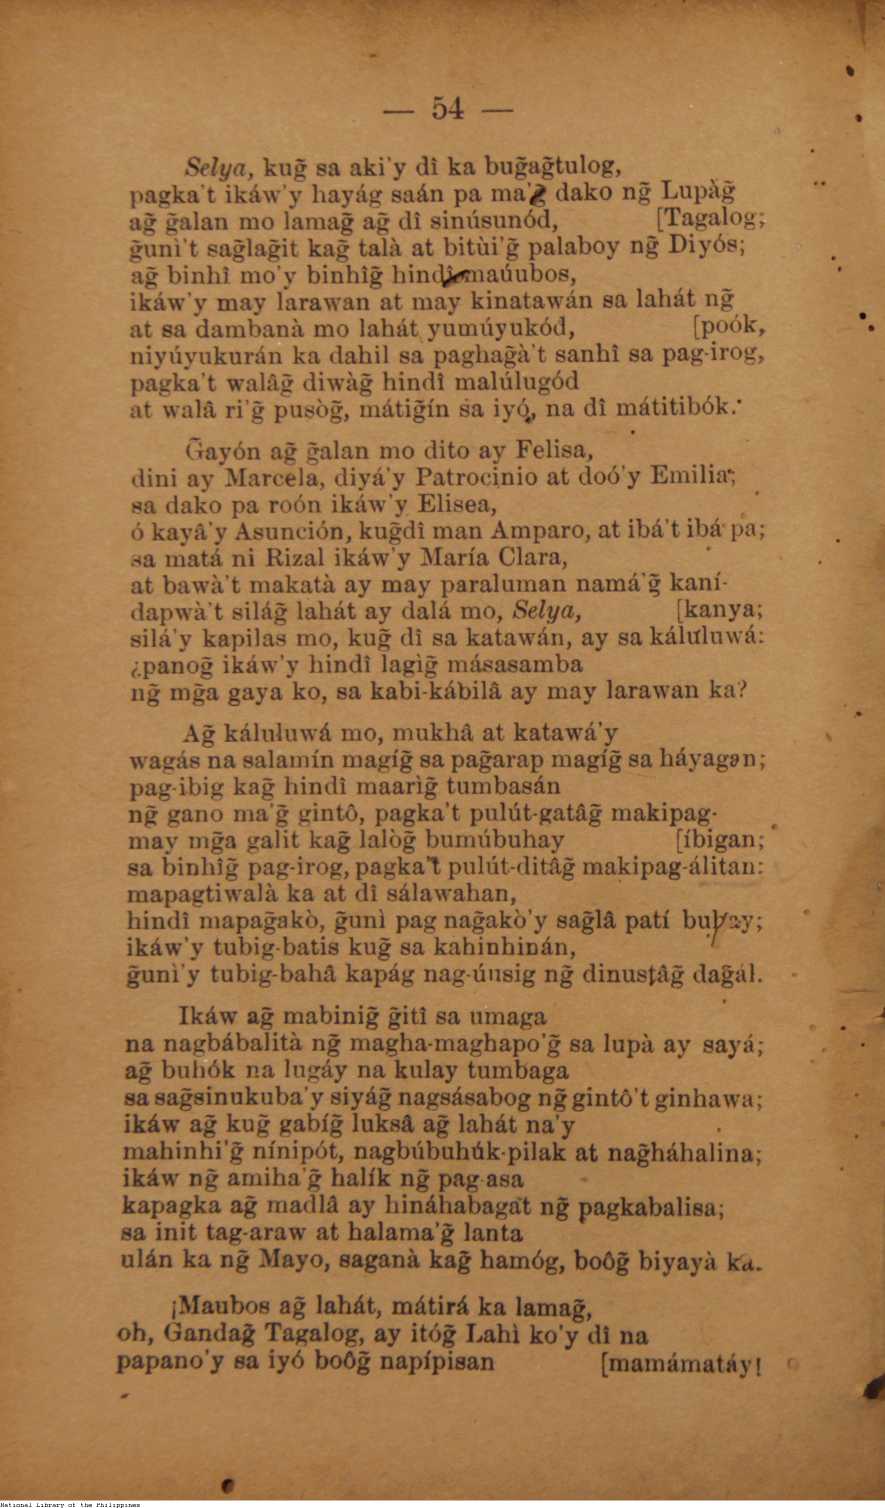 — 54 —
Selya, kug̃ sa aki'y dî ka bug̃ag̃tulog,
pagka't ikáw'y hayág saán pa ma'g̃ dako ng̃ Lupàg̃
ag̃ g̃alan mo lamag̃ ag̃ dî sinúsunód, [Tagalog;
g̃unì't sag̃lag̃it kag̃ talà at bitùi'g̃ palaboy ng̃ Diyós;
ag̃ binhî mo'y binhîg̃ hindî maúubos,
ikáw'y may larawan at may kinatawán sa lahát ng̃
at sa dambanà mo lahát yumúyukód, [poók,
niyúyukurán ka dahil sa paghag̃à't sanhî sa pag-irog,
pagka't walâg̃ diwàg̃ hindî malúlugód
at walâ ri'g̃ pusòg̃, mátig̃ín sa iyó, na dî mátitibók.
G̃ayón ag̃ g̃alan mo dito ay Felisa,
dini ay Marcela, diyá'y Patrocinio at doó'y Emilia;
sa dako pa roón ikáw'y Elisea,
ó kayâ'y Asunción, kug̃dî man Amparo, at ibá't ibá pa;
sa matá ni Rizal ikáw'y María Clara,
at bawà't makatà ay may paraluman namá'g̃ kaní-
dapwà't silág̃ lahát ay dalá mo, Selya, [kanya;
silá'y kapilas mo, kug̃ dî sa katawán, ay sa káluluwá:
¿panog̃ ikáw'y hindî lagìg̃ másasamba
ng̃ mg̃a gaya ko, sa kabi-kábilâ ay may larawan ka?
Ag̃ káluluwá mo, mukhâ at katawá'y
wagás na salamín magíg̃ sa pag̃arap magíg̃ sa háyagan;
pag-ibig kag̃ hindî maarìg̃ tumbasán
ng̃ gano ma'g̃ gintô, pagka't pulút-gatâg̃ makipag-
may mg̃a galit kag̃ lalòg̃ bumúbuhay [íbigan;
sa binhîg̃ pag-irog, pagka't pulút-ditâg̃ makipag-álitan:
mapagtiwalà ka at dî sálawahan,
hindî mapag̃akò, g̃unì pag nag̃akò'y sag̃lâ patí buhay;
ikáw'y tubig-batis kug̃ sa kahinhinán,
g̃unì'y tubig-bahâ kapág nag-úusig ng̃ dinustâg̃ dag̃ál.
Ikáw ag̃ mabinig̃ g̃itî sa umaga
na nagbábalità ng̃ magha-maghapo'g̃ sa lupà ay sayá;
ag̃ buhók na lugáy na kulay tumbaga
sa sag̃sinukuba'y siyág̃ nagsásabog ng̃ gintô't ginhawa;
ikáw ag̃ kug̃ gabíg̃ luksâ ag̃ lahát na'y
mahinhi'g̃ nínipót, nagbúbuhúk-pilak at nag̃háhalina;
ikáw ng̃ amiha'g̃ halík ng̃ pag-asa
kapagka ag̃ madlâ ay hináhabagat ng̃ pagkabalisa;
sa init tag-araw at halama'g̃ lanta
ulán ka ng̃ Mayo, saganà kag̃ hamóg, boôg̃ biyayà ka.
¡Maubos ag̃ lahát, mátirá ka lamag̃,
oh, Gandag̃ Tagalog, ay itóg̃ Lahì ko'y dî na
papano'y sa iyó boôg̃ napípisan [mamámatáy!
National Library of the Philippines